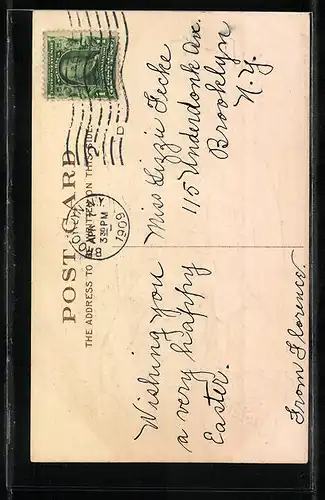 POST CARD
THE ADDRESS TO BE WRITTEN ON THIS SIDE.
N.Y.
APR 7
3 30 PM
1909
D
Wishing you
a very happy
Easter.
From Florence.
Miss Lizzie Fecke
115 Underdonk Ave.
Brooklyn
N.Y.